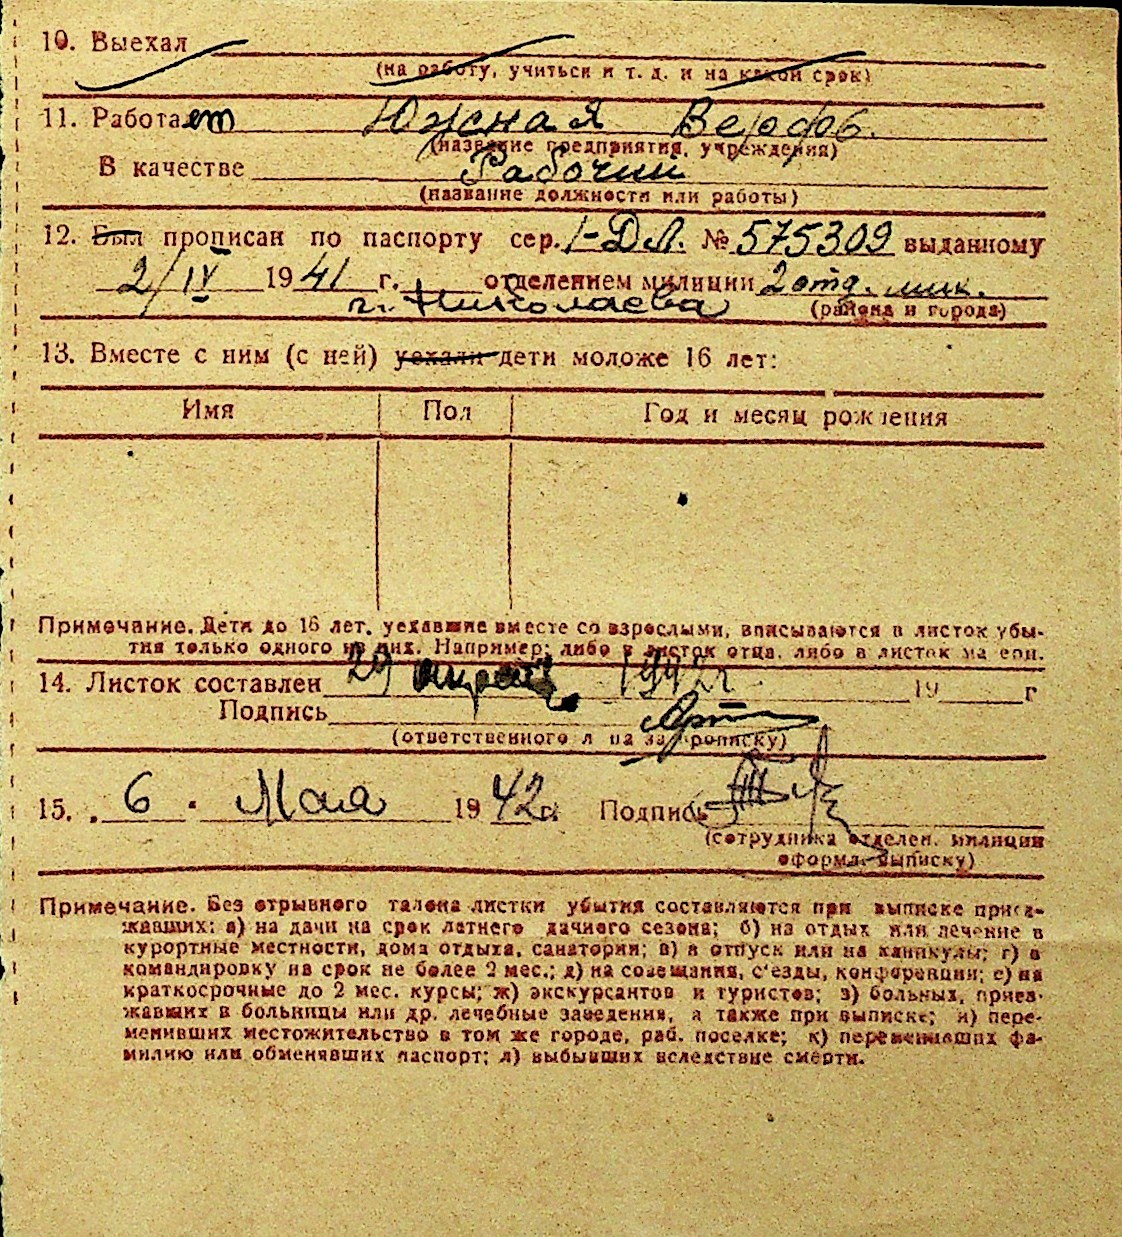 10. Выехал
(на работу, учиться и т. д. и на какой срок)
11. Работает Южная Верфь.
(название предприятия, учреждения)
В качестве Рабочий
(название должности или работы)
12. Был прописан по паспорту сер. I-ДЛ. № 575309 выданному
2/IV 1941 г. отделением милиции 2 отд. мил.
г. Николаева (района и города)
13. Вместе с ним (с ней) уехали дети моложе 16 лет:
Имя Пол Год и месяц рождения
Примечание. Дети до 16 лет, уехавшие вместе со взрослыми, вписываются в листок убы-
тия только одного из них. Например: либо в листок отца, либо в листок матери.
14. Листок составлен 29 апреля 1942 г. 19 г
Подпись
(ответственного лица за прописку)
15. 6. Мая 1942 г. Подпись
(сотрудника отделен. милиции
оформл. выписку)
Примечание. Без отрывного талона листки убытия составляются при выписке приез-
жавших: а) на дачи на срок летнего дачного сезона; б) на отдых или лечение в
курортные местности, дома отдыха, санатории; в) в отпуск или на каникулы; г) в
командировку на срок не более 2 мес.; д) на совещания, с'езды, конференции; е) на
краткосрочные до 2 мес. курсы; ж) экскурсантов и туристов; з) больных, приез-
жавших в больницы или др. лечебные заведения, а также при выписке; и) пере-
менивших местожительство в том же городе, раб. поселке; к) переменивших фа-
милию или обменявших паспорт; л) выбывших вследствие смерти.